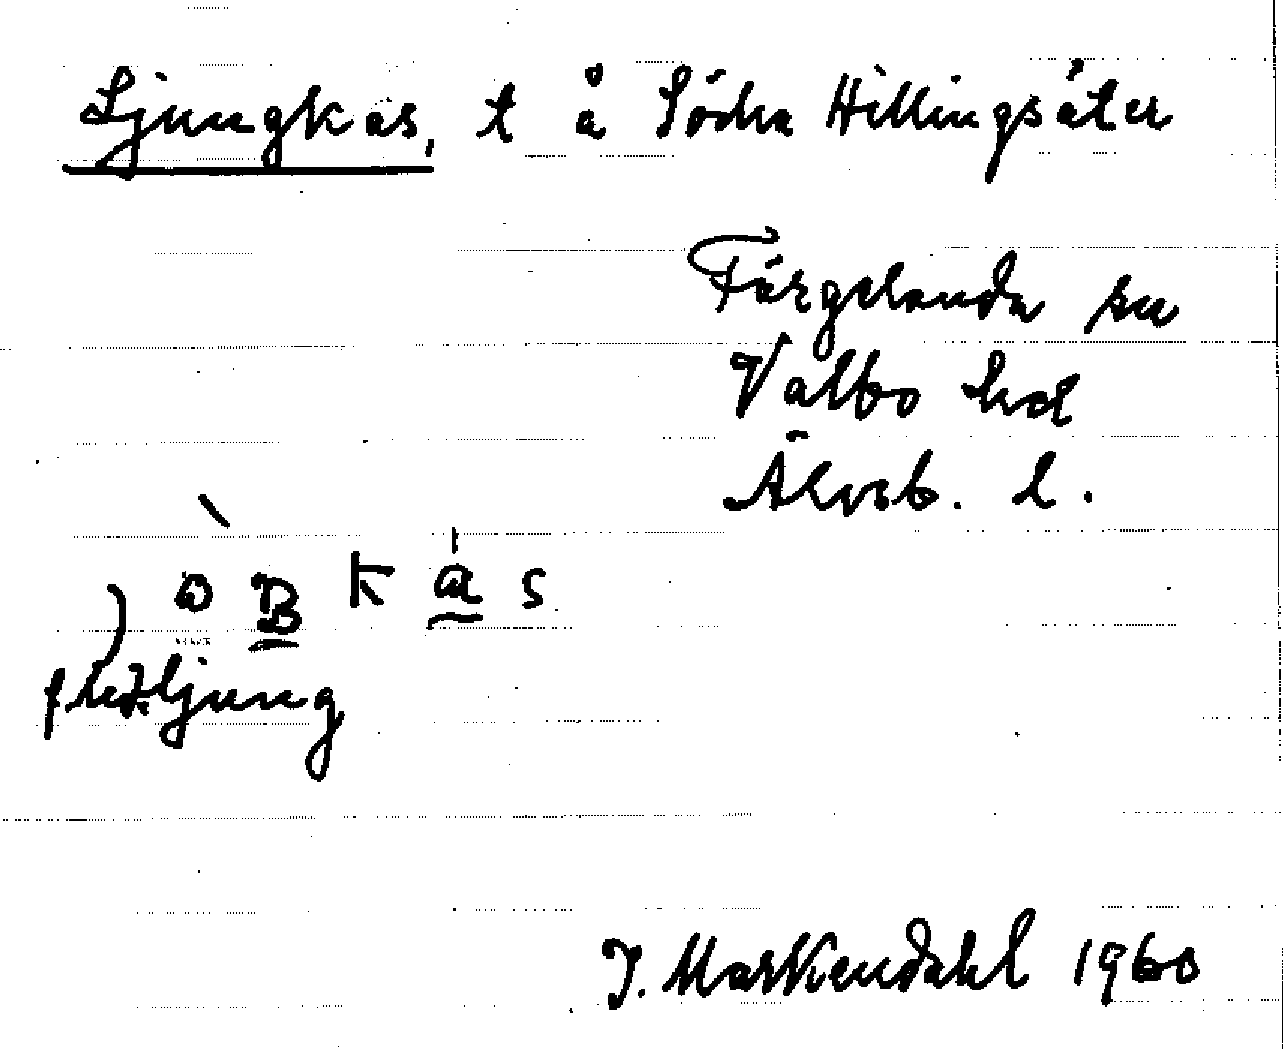 Ljungkas, t å Södra Hillingsäter
Färgelanda sn
Valbo hd
Älvsb. l.
ljung
I. Markendahl 1960